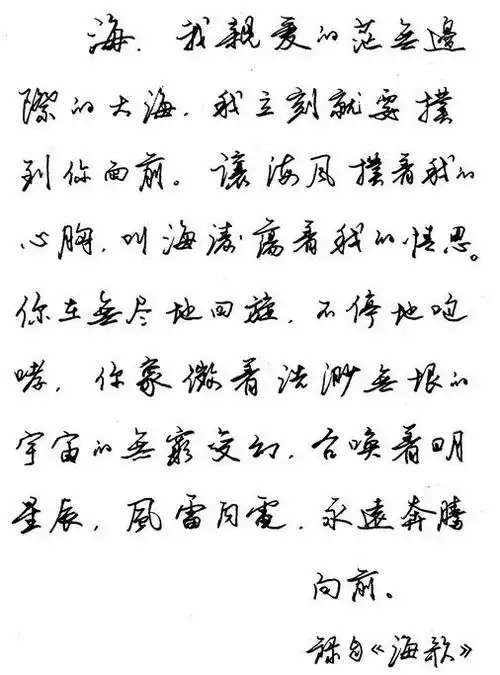 海，我親爱的茫無邊
際的大海，我立刻就要撲
到你面前。讓海风撲着我的
心胸，叫海濤蕩着我的情思。
你在無尽地回旋，不停地咆
哮，你象徵着浩渺無垠的
宇宙的無窮变幻，召唤着明
星辰，風雷闪電，永遠奔騰
向前。
録自《海歌》